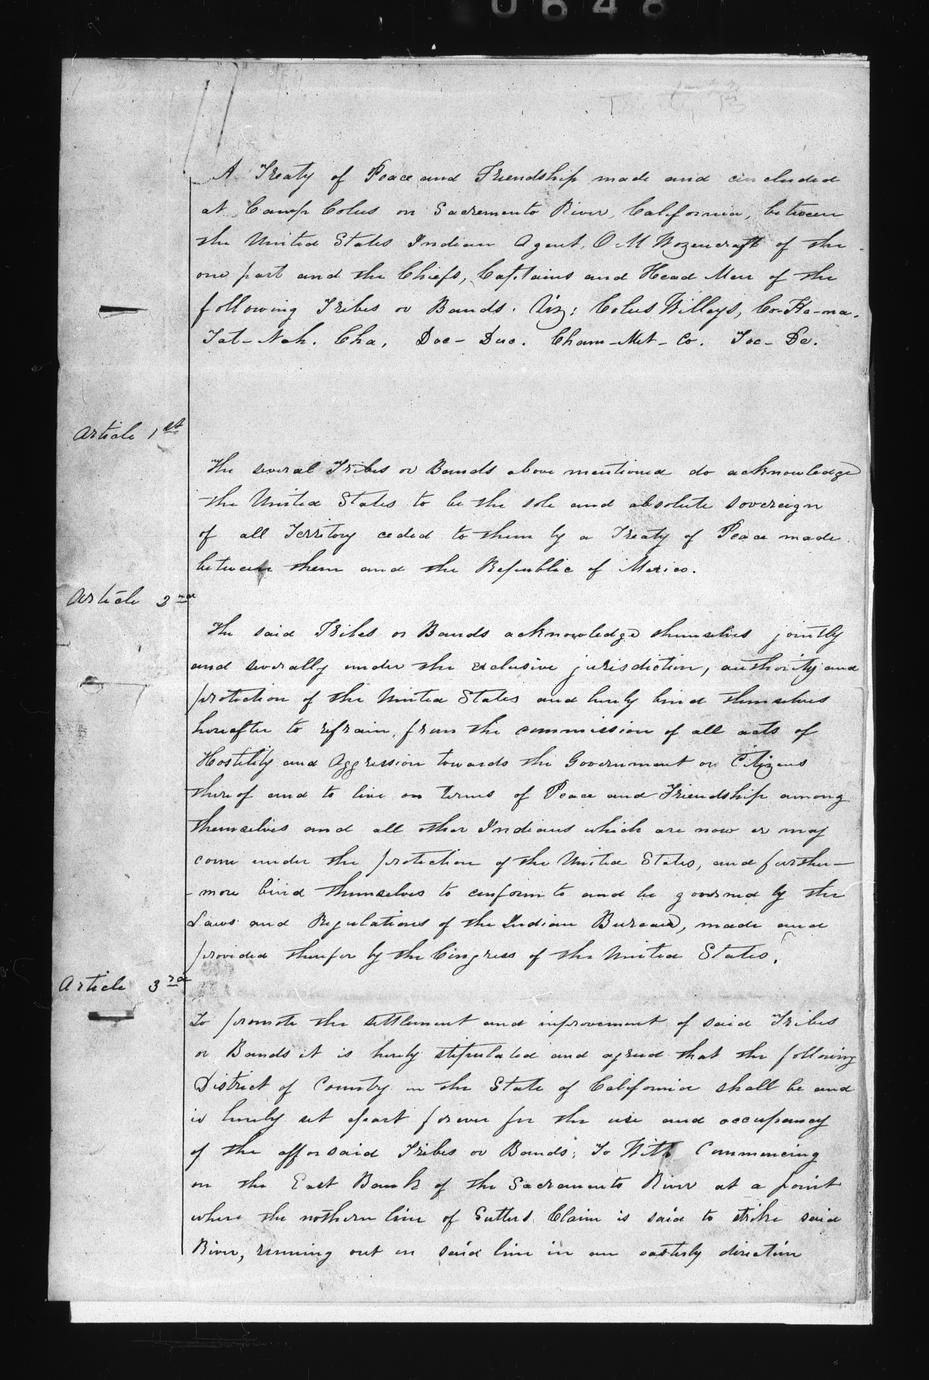 0648
A Treaty of Peace and Friendship made and concluded
at Camp Colus on Sacramento River, California, between
the United States Indian Agent, O. M. Wozencraft of the
one part and the Chiefs, Captains and Head Men of the
following Tribes or Bands. Viz; Colus Willays, Co-Ha-na.
Tat-Nah. Cha, Doc-Duc. Cham-Met-Co. Toc-De.
Article 1st
The several Tribes or Bands above mentioned do acknowledge
the United States to be the sole and absolute sovereign
of all Territory ceded to them by a Treaty of Peace made
between them and the Republic of Mexico.
Article 2nd
The said Tribes or Bands acknowledge themselves jointly
and severally under the exclusive jurisdiction, authority and
protection of the United States and hereby bind themselves
hereafter to refrain, from the commission of all acts of
Hostility and Aggression towards the Government or Citizens
thereof and to live on terms of Peace and Friendship among
themselves and all other Indians which are now or may
come under the protection of the United States, and further-
-more bind themselves to conform to and be governed by the
Laws and Regulations of the Indian Bureau, made and
provided therefor by the Congress of the United States.
Article 3rd
To promote the settlement and improvement of said Tribes
or Bands it is hereby stipulated and agreed that the following
District of Country in the State of California shall be and
is hereby set apart forever for the use and occupancy
of the afforsaid Tribes or Bands; To Witt Commencing
on the East Bank of the Sacramento River at a point
where the nothern line of Sutters Claim is said to strike said
River, running out in said line in an easterly direction